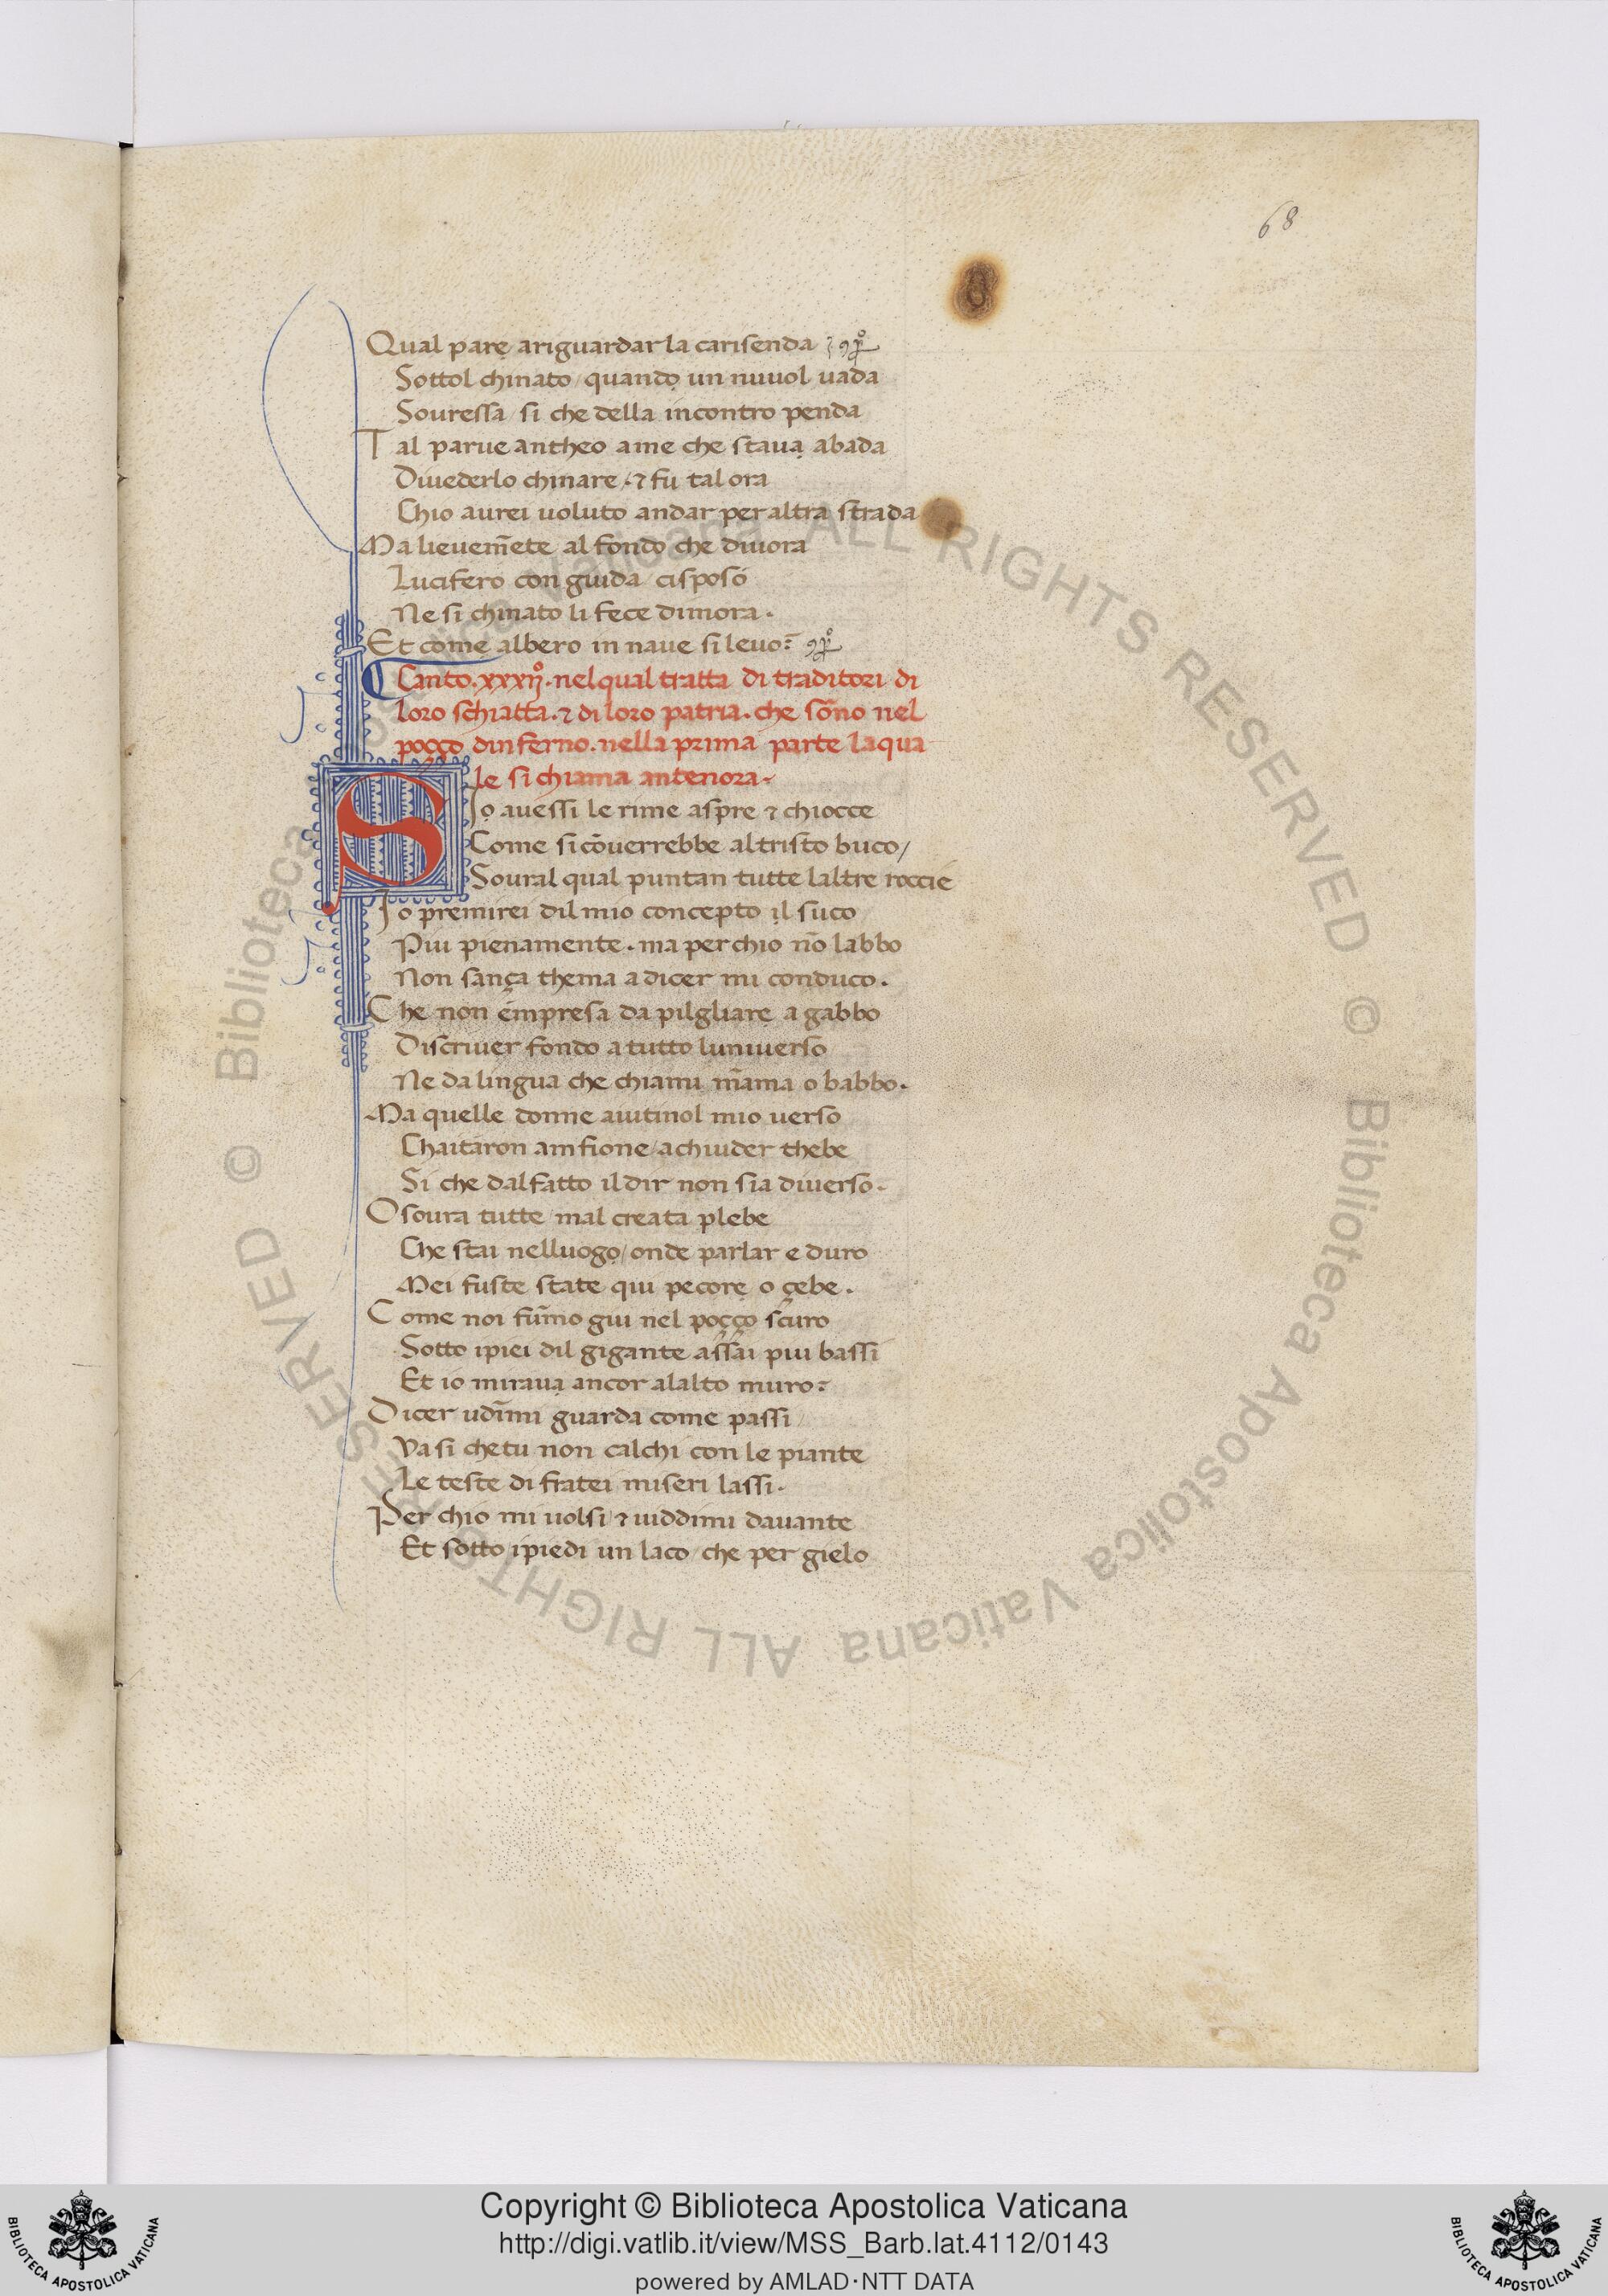 68
Qual parẹ ariguardar la carisenda
Sottol chinato / quandọ un nuuol / uada
Souressa / si che della incontro penda
Tal parue antheo ame che stauạ abada
Diuederlo chinare / ⁊ fu tal ora
Chio aurei uoluto andar per altra strada
Ma lieuem̄ete al fondo che diuora
Lucifero con giuda / ci sposo
Ne si chinato li fece dimora.
Et comẹ albero in naue si leuo:
Canto .xxxijº. nel qual tratta di traditori di
loro schiatta. ⁊ di loro patria. che so̅no nel
poçço dinferno. nella prima parte la qua
le si chiama antenora.
SIọ auessi le rime aspre ⁊ chiocce
Come si co̅uerrebbe al tristo buco /
Soural qual puntan tutte laltre roccie
Io premirei dil mio concepto il suco
Piu pienamente. ma perchio no̅ labbo
Non sança thema a dicer mi conduco.
Che non e̅mpresa da pilgliarẹ a gabbo
Discriuer fondo a tutto luniuerso
Ne da lingua che chiami m̅ama o babbo.
Ma quelle donne aiutinol mio uerso
Chaitaron amfione / achiuder thebe
Si che dal fatto il dir non sia diuerso.
O soura tutte / mal creata plebe
Che stai nelluogọ / onde parlar e duro
Mei fuste state qui pecorẹ o çebe.
Come noi fum̅o giu nel poçço scuro
Sotto ipiei dil gigante assai piu bassi
Et io mirauạ ancor alalto muro:
Dicer udim̅i guarda come passi /
Va si chetu non calchi con le piante
Le teste di fratei miseri lassi.
Per chio mi uolsi / ⁊ uiddimi dauante
Et sotto ipiedi un laco / che per gielo
© Biblioteca Apostolica Vaticana ALL RIGHTS RESERVED © Biblioteca Apostolica Vaticana ALL RIGHTS RESERVED
Copyright © Biblioteca Apostolica Vaticana
http://digi.vatlib.it/view/MSS_Barb.lat.4112/0143
powered by AMLAD·NTT DATA
BIBLIOTECA APOSTOLICA VATICANA
BIBLIOTECA APOSTOLICA VATICANA